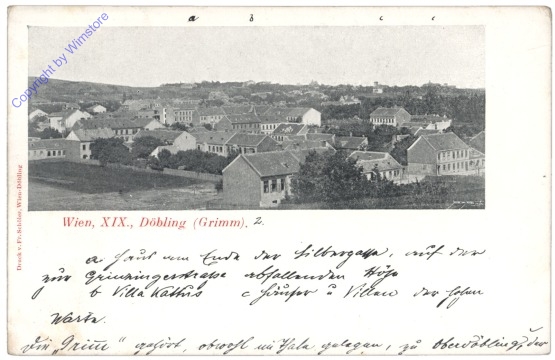 a b c c
Copyright by Wimstore
Wien, XIX., Döbling (Grimm). 2.
Druck v. Fr. Schöler, Wien-Döbling
a Haus am Ende der Silbergasse, auf der
zur Grinzingerstraße abfallenden Höhe
b Villa Kattus c Häuser u Villen der Hohen
Warte.
Die "Grimm" gehört, obwohl im Thale gelegen, zu Oberdöbling, der